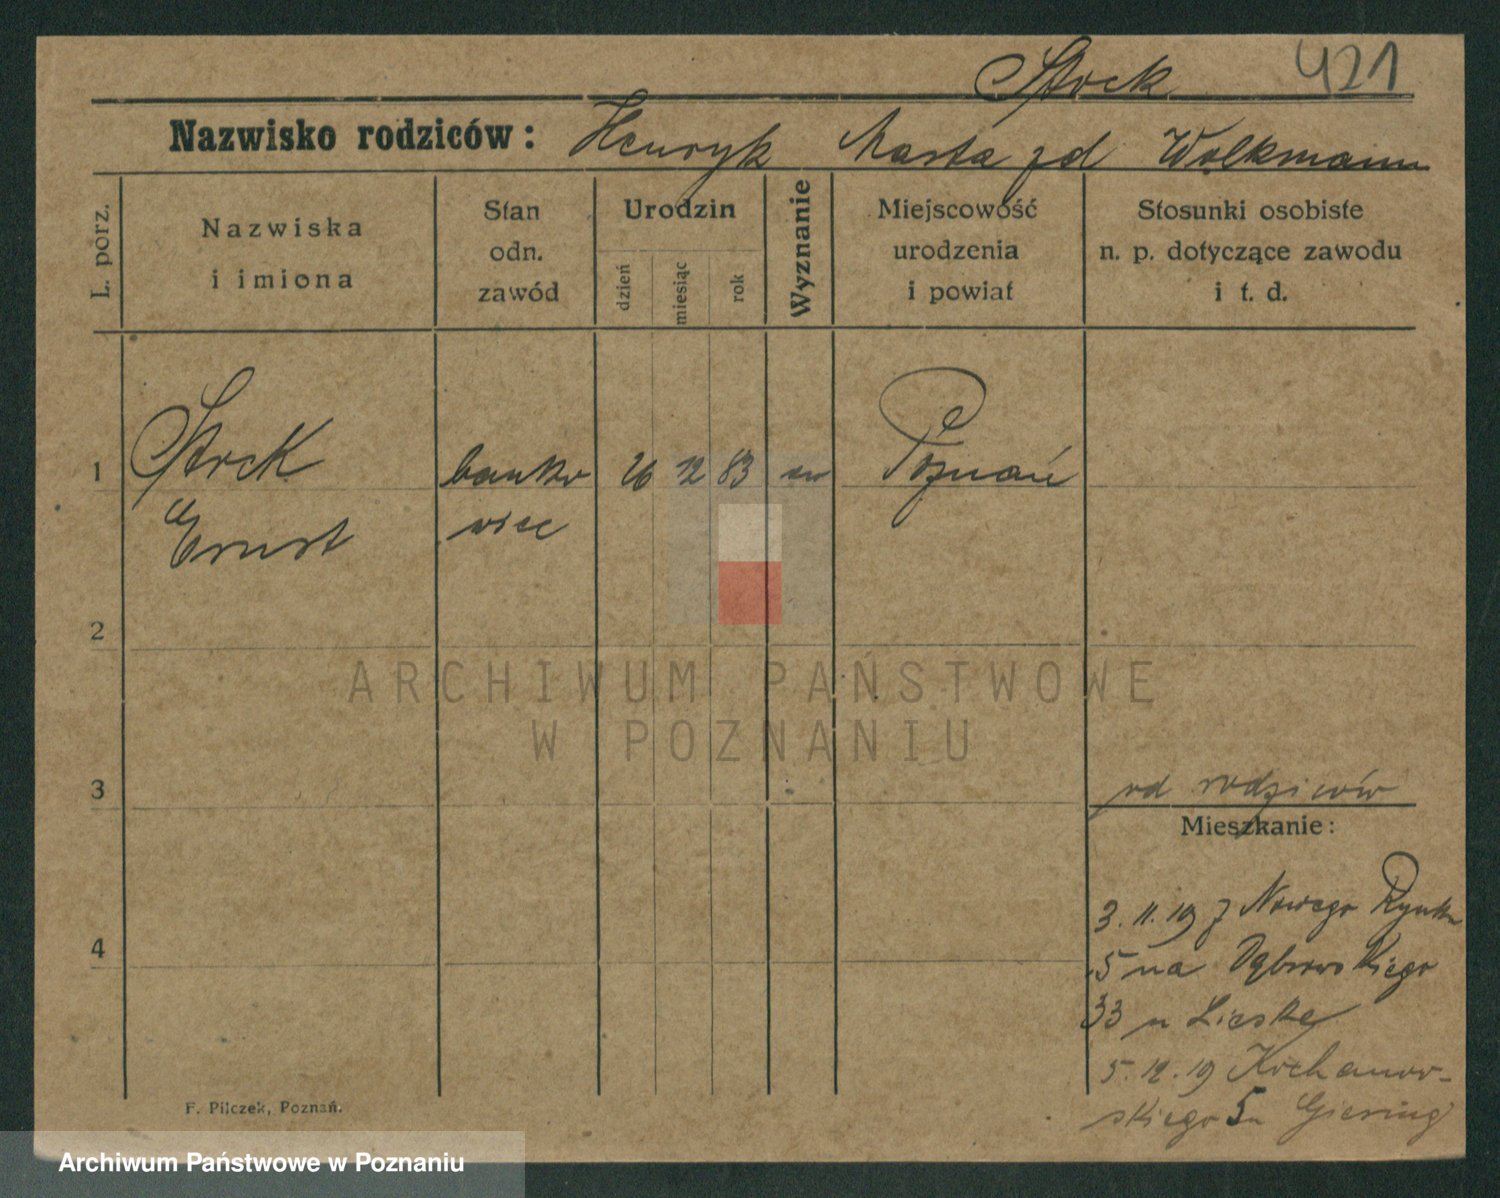 Stock 421
Nazwisko rodziców: Henryk Marta zd Wolkmann
L. porz.
Nazwiska
i imiona
Stan
odn.
zawód
Urodzin
dzień
miesiąc
rok
Wyznanie
Miejscowość
urodzenia
i powiat
Stosunki osobiste
n. p. dotyczące zawodu
i t. d.
1 Stock banko 26 12 83 ew Poznań
Ernst wiec
2
ARCHIWUM PAŃSTWOWE
W POZNANIU
3
od rodziców
Mieszkanie:
3.11.19 z Nowego Rynku
4
5 na Dąbrowskiego
33 u Lieske
5.12.19 Kochanow-
skiego 5 u Giering
F. Pilczek, Poznań.
Archiwum Państwowe w Poznaniu